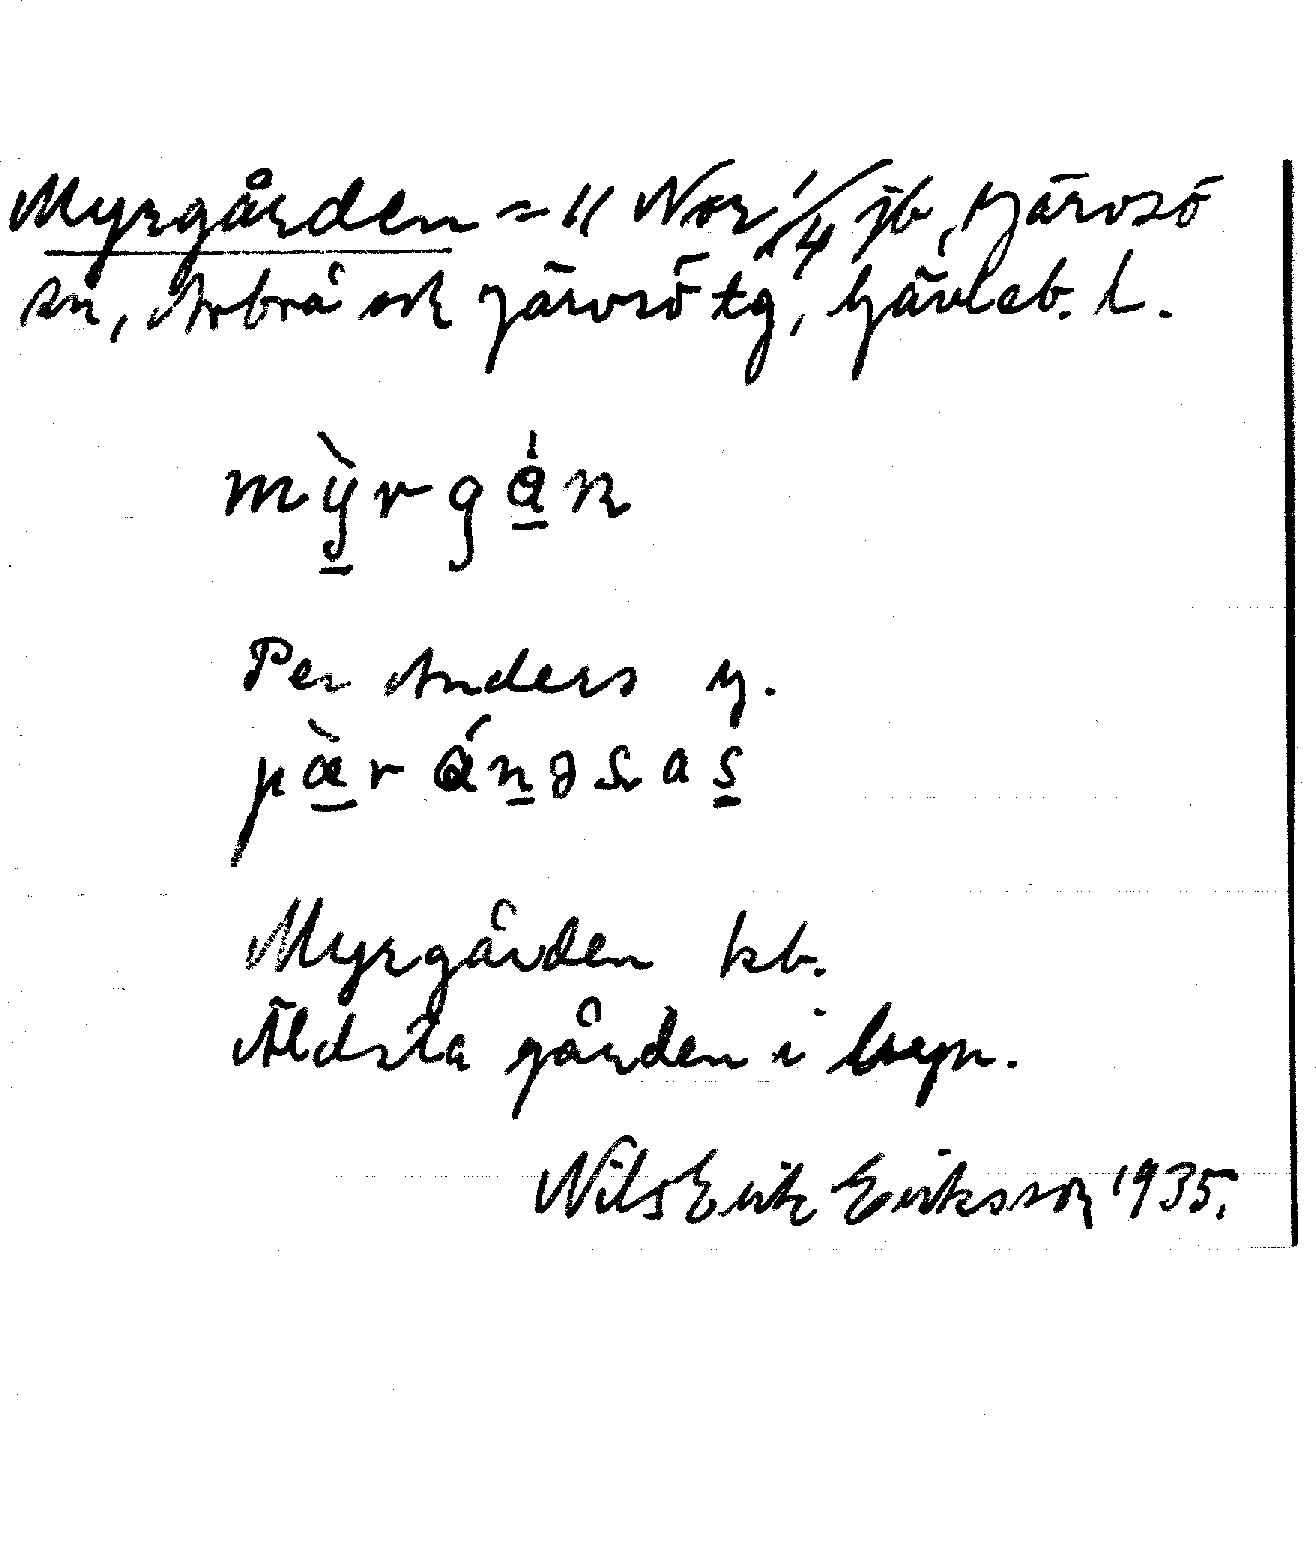 Myrgården = 11 Nor 1/4 jb, Järvsö
sn, Arbrå och Järvsö tg, Gävleb. l.
mỳrgán
Per Anders g.
pæ̀r ánəsas
Myrgården kb.
Äldsta gården i byn.
Nils Erik Eriksson 1935.